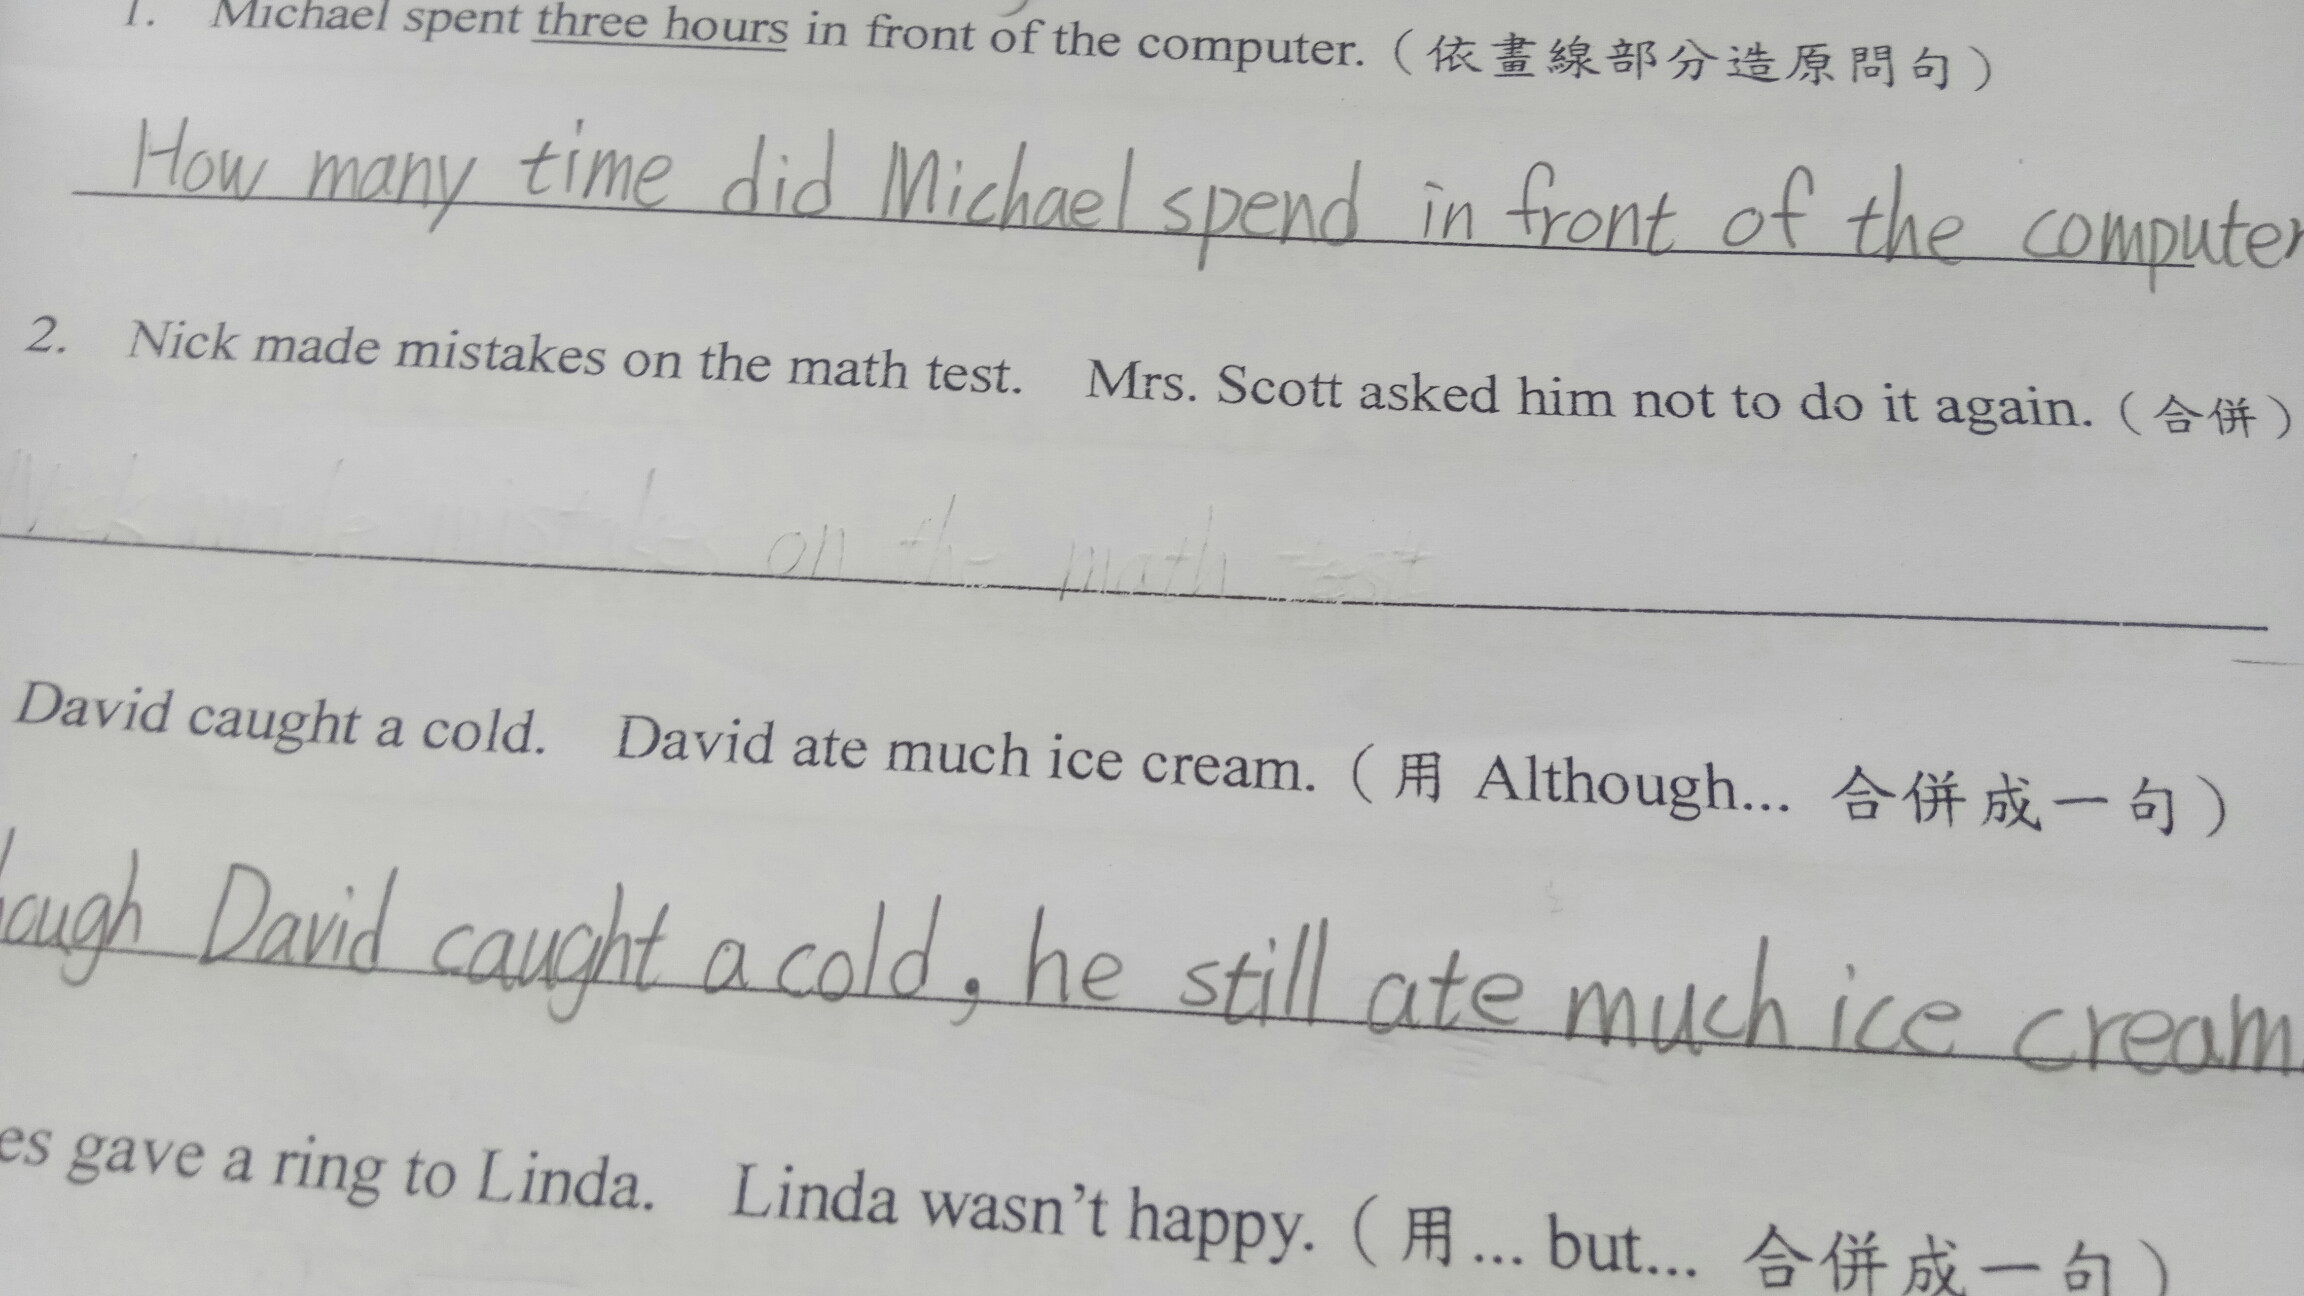 1. Michael spent three hours in front of the computer.（依畫線部分造原問句）
How many time did Michael spend in front of the computer
2. Nick made mistakes on the math test. Mrs. Scott asked him not to do it again.（合併）
Nick made mistakes on the math test
David caught a cold. David ate much ice cream.（用 Although... 合併成一句）
hough David caught a cold, he still ate much ice cream.
es gave a ring to Linda. Linda wasn't happy.（用... but... 合併成一句）